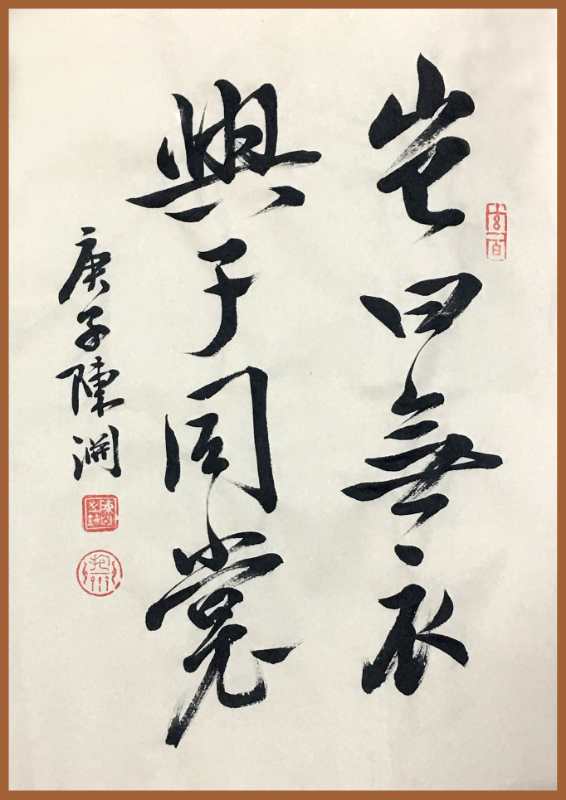 豈曰無衣
與子同裳
庚子陳淵